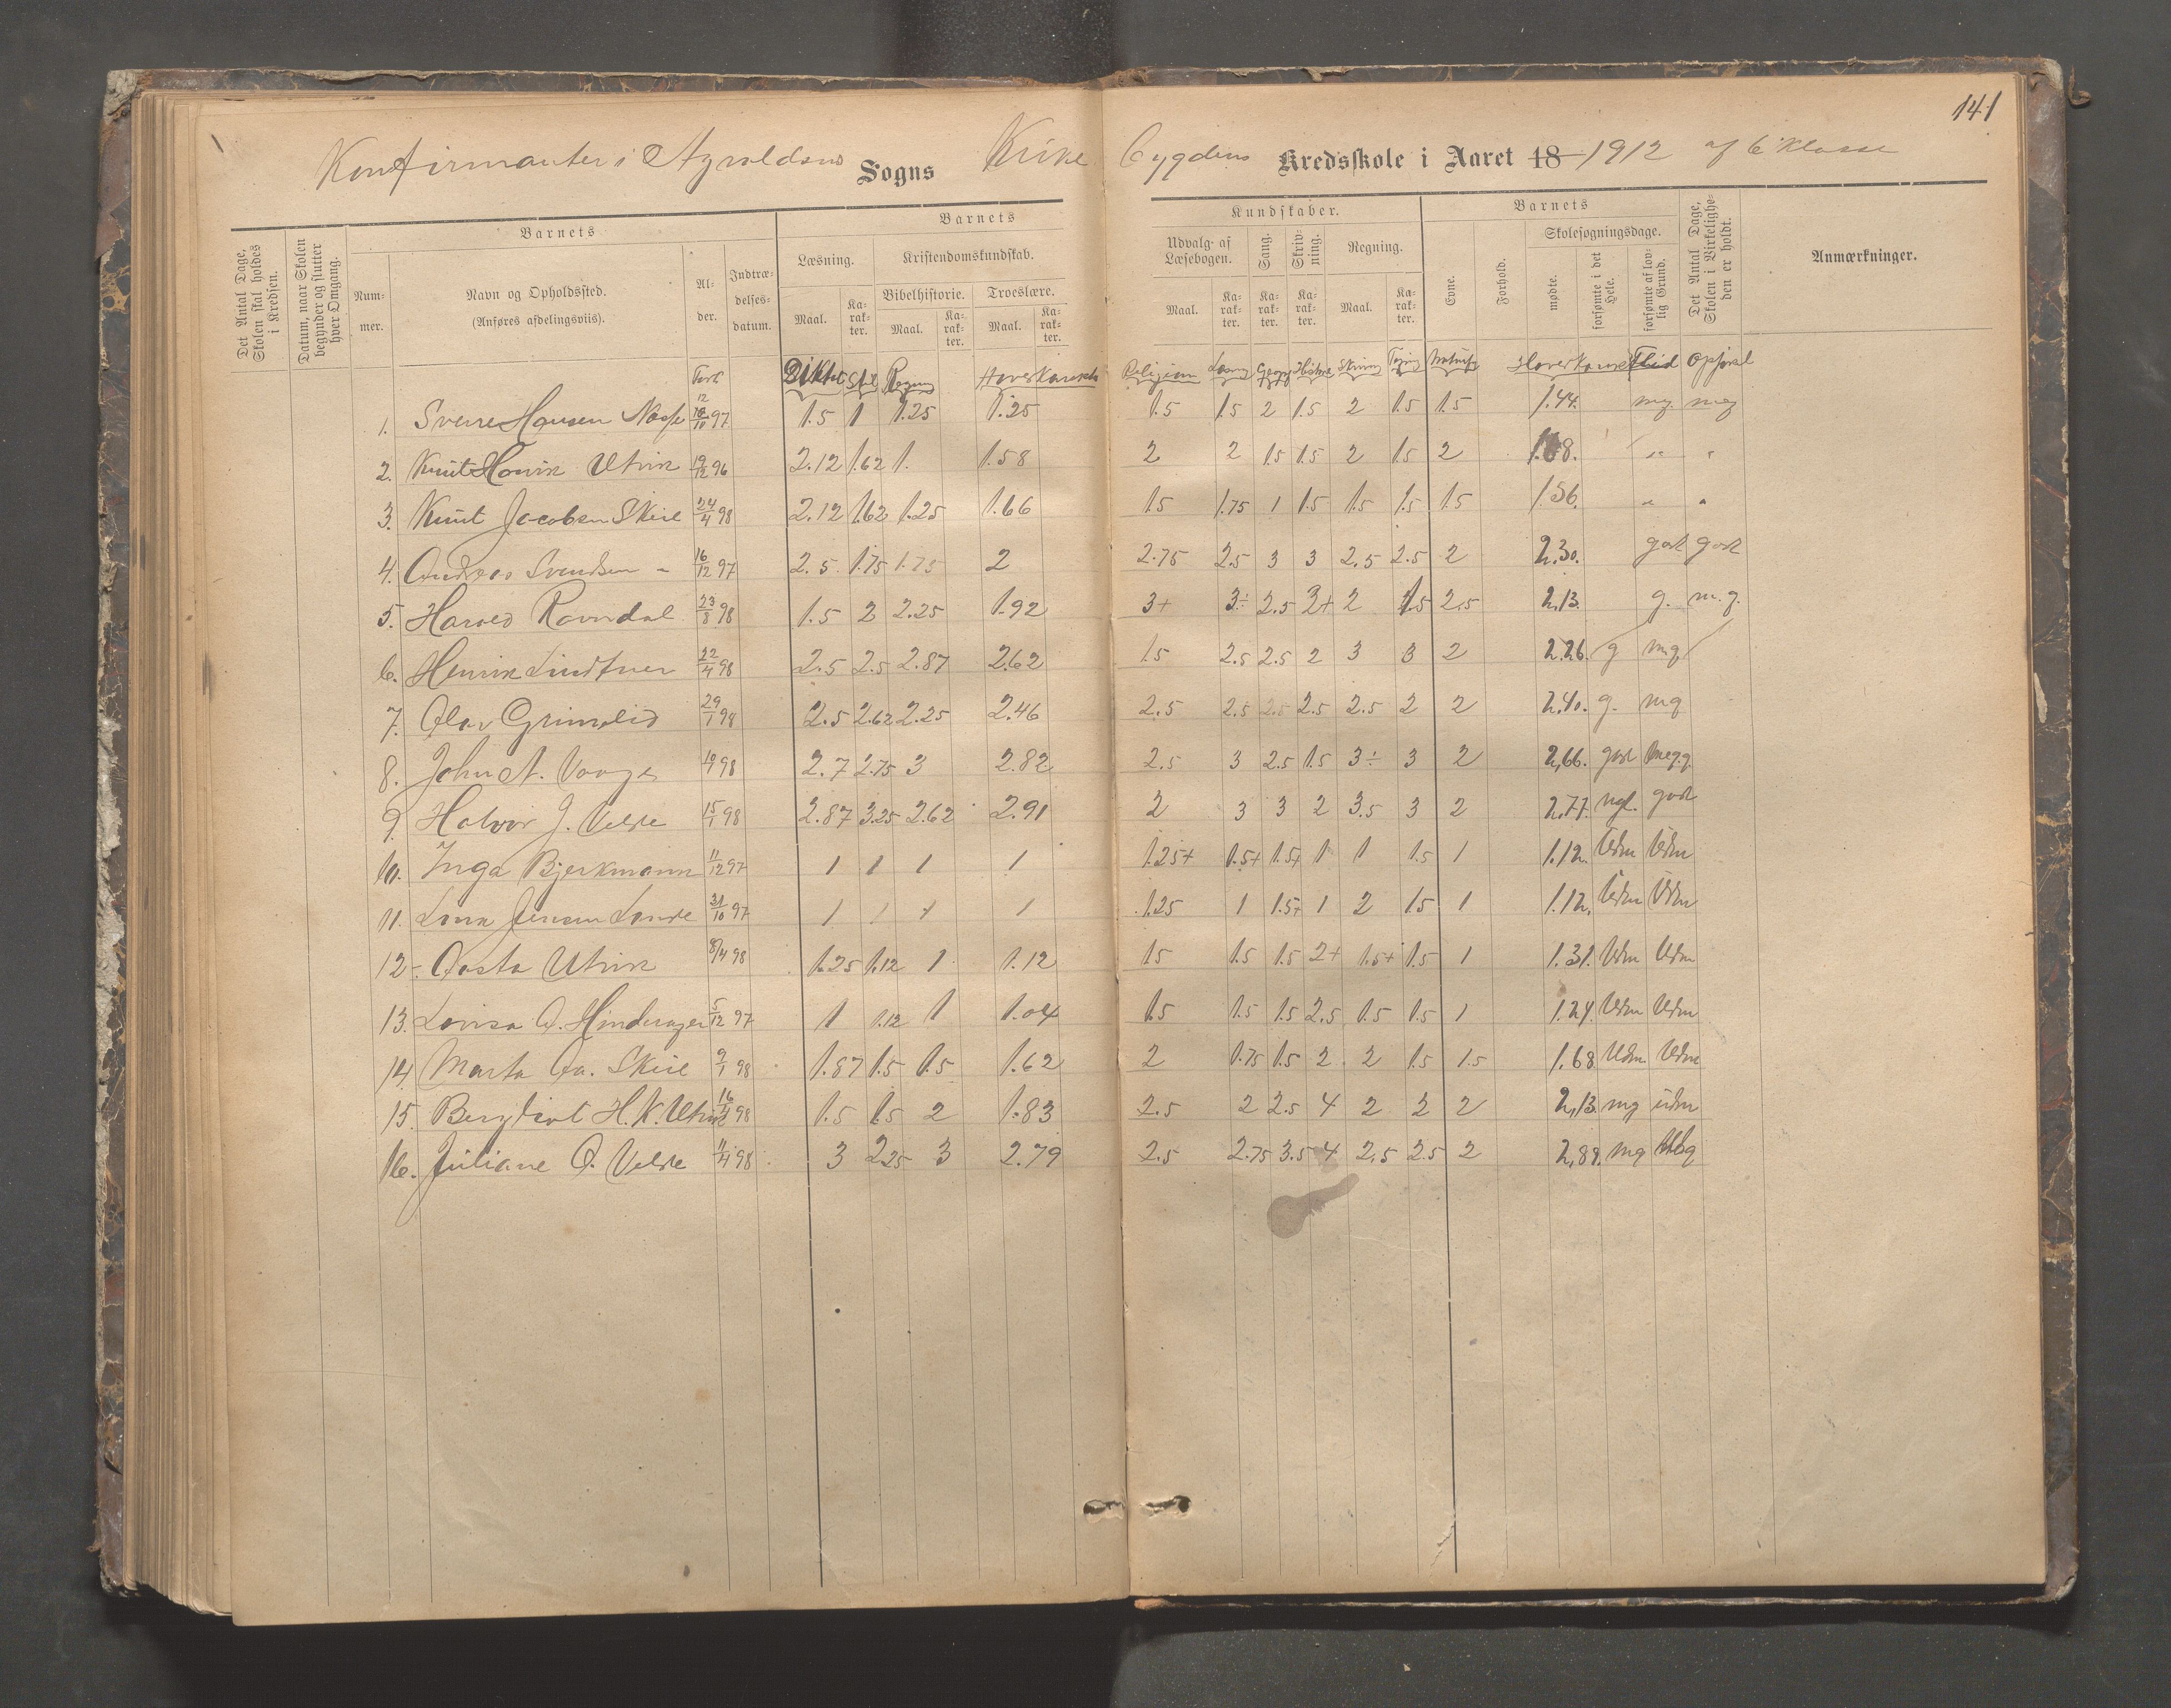 141
Konfirmanter i Sogns Kirke bygdens Kredsskole i Aaret 18 1912 af 6 Klasse
Det Antal Dage, Skolen skal holdes i Kredsen.
Datum, naar Skolen begynder og slutter hver Omgang.
Barnets
Nummer.
Navn og Opholdssted.
(Anføres afdelingsviis).
Alder.
Indtrædelsesdatum.
Barnets
Læsning.
Kristendomskundskab.
Bibelhistorie.
Troeslære.
Maal.
Karakter.
Maal.
Karakter.
Maal.
Karakter.
Kundskaber.
Udvalg af Læsebogen.
Sang.
Skrivning.
Regning.
Maal.
Karakter.
Karakter.
Karakter.
Maal.
Karakter.
Barnets
Evne.
Forhold.
Skolesøgningsdage.
mødte.
forsømte i det Hele.
forsømte af lovlig Grund.
Det Antal Dage, Skolen i Virkeligheden er holdt.
Anmærkninger.
Født Diktat Stil Regning Hoverkarakter Religion Læsning Geogr Historie Skrivning Tegning Naturh Hoverkarakter Flid Opførsel
1. Sverre Hansen 12/10 97 1.5 1 1.25 1.25 1.5 1.5 2 1.5 2 1.5 1.5 1.44. mg. meg
2. Knut Utvik 19/12 96 2.12 1.62 1. 1.58 2 2 1.5 1.5 2 1.5 2 " "
3. Knut Jacobsen Skeie 24/4 98 2.12 1.62 1.25 1.66 1.5 1.75 1 1.5 1.5 1.5 1.5 1.56. " "
4. Andreas Svendsen " 16/12 97 2.5 1.75 1.75 2 2.75 2.5 3 3 2.5 2.5 2 2.30. godt godt
5. Harald Ravndal 23/8 98 1.5 2 2.25 1.92 3+ 3÷ 2.5 2+ 2 1.5 2.5 2,13. g. m.g.
6. Henrik Lindtner 22/4 98 2.5 2.5 2.87 2.62 1.5 2.5 2.5 2 3 3 2 2.26. g mg
7. Olav Grimslid 29/1 98 2.5 2.62 2.25 2.46 2.5 2.5 2.5 2.5 2.5 2 2 2,40. g. mg
8. John A. Vaage 98 2.7 2.75 3 2.82 2.5 3 2.5 1.5 3÷ 3 2 2,66. godt meg.g.
9. Halvor J. Velde 15/1 98 2.87 3.25 2.62 2.91 2 3 3 2 3.5 3 2 2,77. ngl. godt
10. Inga Bjerkmann 11/12 97 1 1 1 1 1.25+ 1.5+ 1.5+ 1 1 1.5 1 1.12. Udm Udm
11. Jensen Lande 31/10 97 1 1 1 1 1.25 1 1.5+ 1 2 1.5 1 1.12. Udm Udm
12. Aasta Utvik 8/4 98 1.25 1.12 1 1.12 1.5 1.5 1.5 2+ 1.5+ 1.5 1 1.31. Udm Udm
13. Lovisa O. Hinderager 5/12 97 1 1.12 1 1.04 1.5 1.5 1.5 2.5 1.5 1.5 1 1.24. Udm Udm
14. Marta Aa. Skeie 9/1 98 1.87 1.5 1.5 1.62 2 1.75 1.5 2 2 1.5 1.5 1.68 Udm. Udm
15. Bergliot H. K. Utvik 98 1.5 1.5 2 1.83 2.5 2 2.5 4 2 2 2 2,13 mg udm
16. Juliane O. Velde 11/4 98 3 2.25 3 2.79 2.5 2.75 3.5 4 2,5 2.5 2 mg